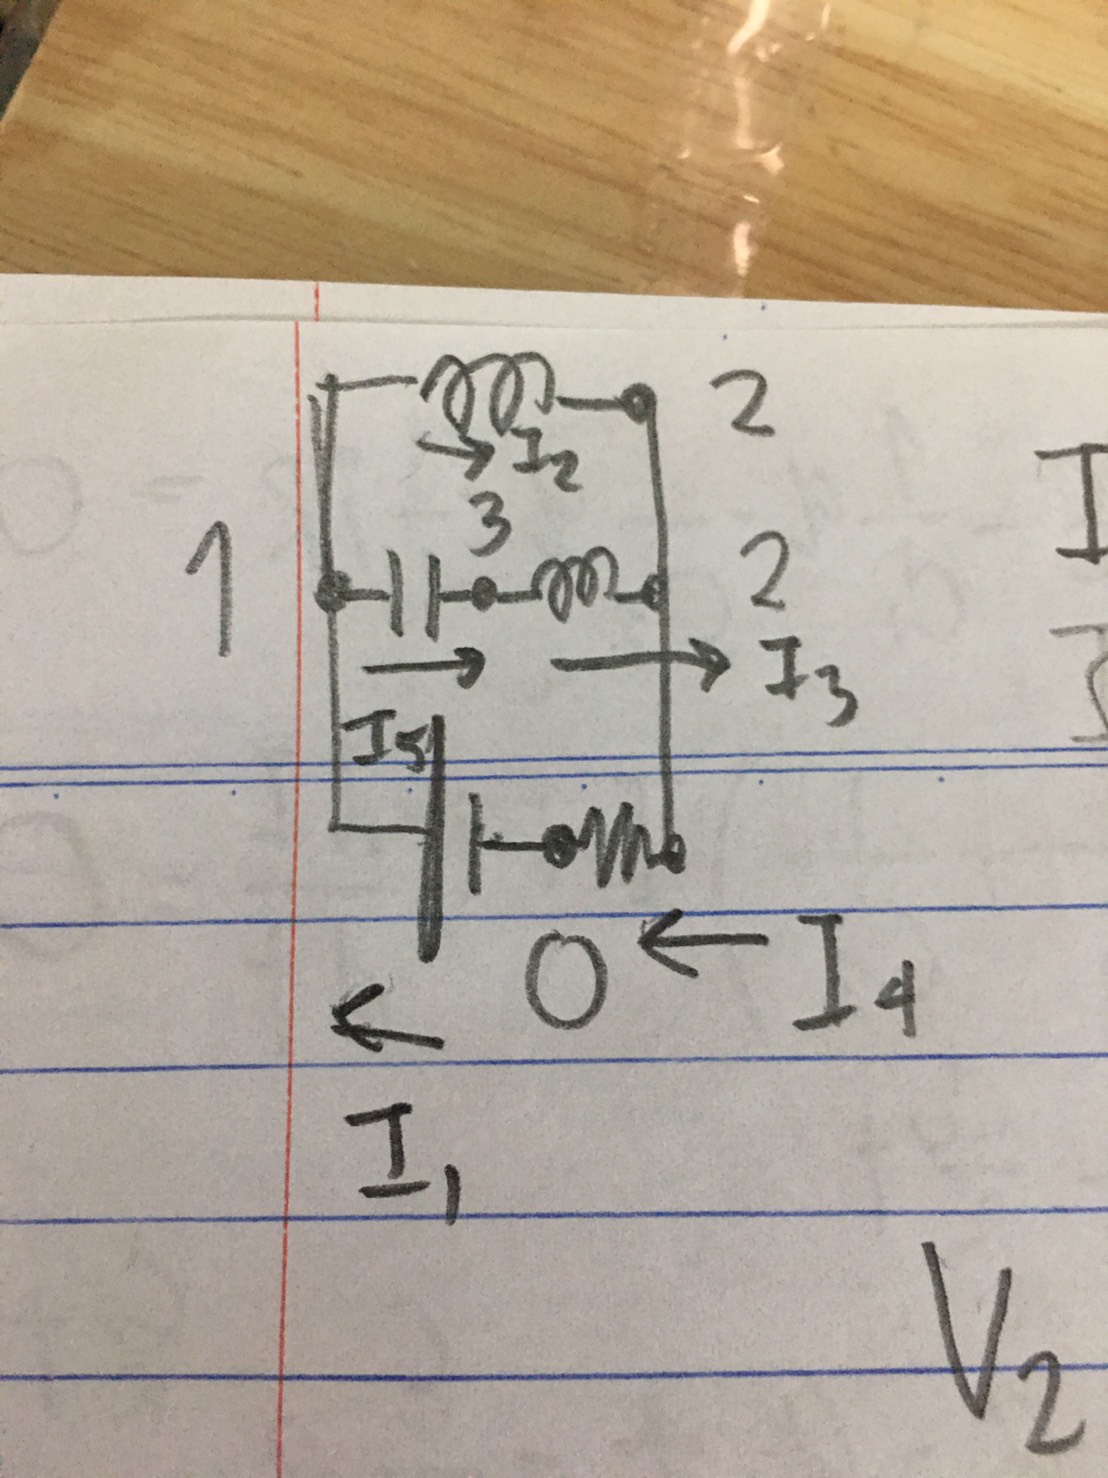 2
I₂
3
1
2
I
I₃
I₅
0
I₄
I₁
V₂